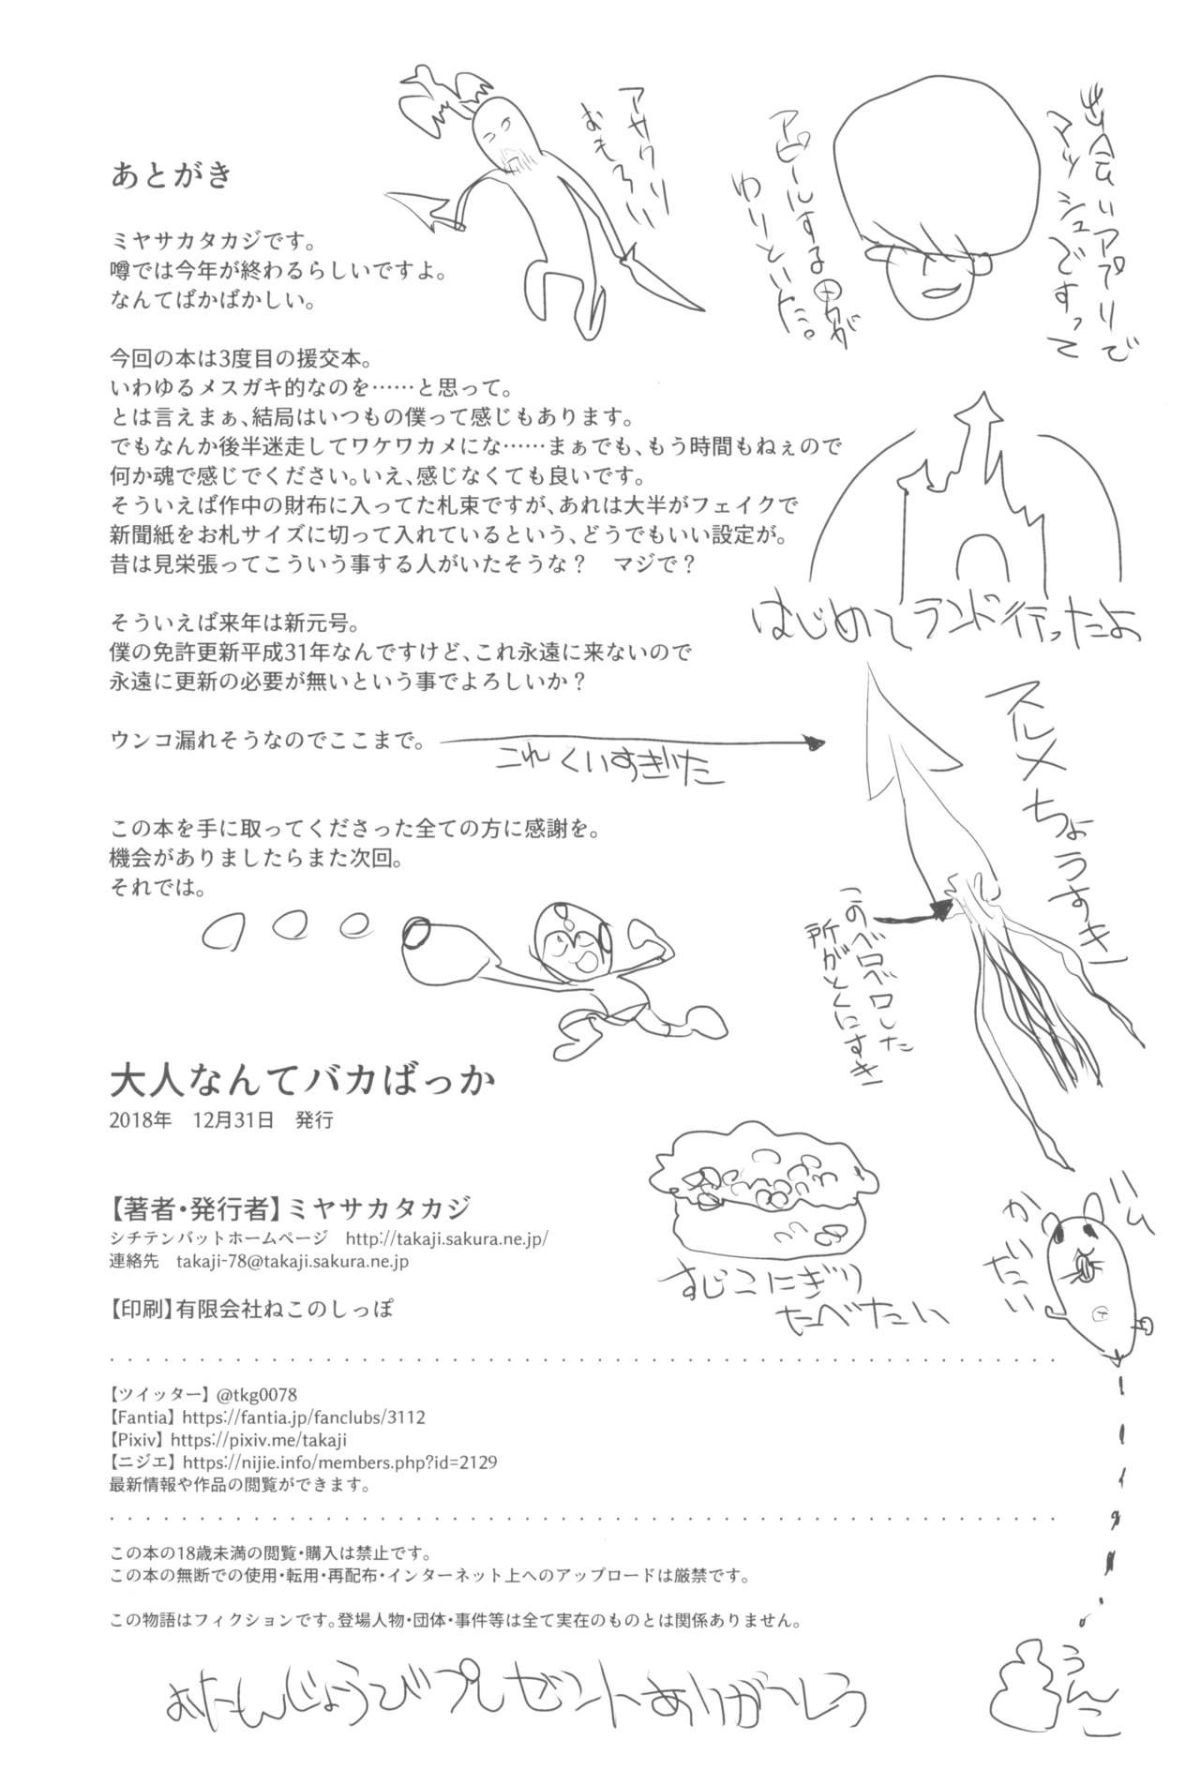 あとがき
ミヤサカタカジです。
噂では今年が終わるらしいですよ。
なんてばかばかしい。
今回の本は3度目の援交本。
いわゆるメスガキ的なのを……と思って。
とは言えまぁ、結局はいつもの僕って感じもあります。
でもなんか後半迷走してワケワカメにな……まぁでも、もう時間もねぇので
何か魂で感じでください。いえ、感じなくても良いです。
そういえば作中の財布に入ってた札束ですが、あれは大半がフェイクで
新聞紙をお札サイズに切って入れているという、どうでもいい設定が。
昔は見栄張ってこういう事する人がいたそうな？　マジで？
そういえば来年は新元号。
僕の免許更新平成31年なんですけど、これ永遠に来ないので
永遠に更新の必要が無いという事でよろしいか？
ウンコ漏れそうなのでここまで。
これくいすぎた
この本を手に取ってくださった全ての方に感謝を。
機会がありましたらまた次回。
それでは。
アサクリ
おもろい
出会いアプリで
マッシュですって
アピールする男が
わりといた。
はじめてランド行ったよ
スルメちょうすき
このベロベロした
所がとくにすき
大人なんてバカばっか
2018年　12月31日　発行
【著者・発行者】ミヤサカタカジ
シチテンバットホームページ　http://takaji.sakura.ne.jp/
連絡先　takaji-78@takaji.sakura.ne.jp
【印刷】有限会社ねこのしっぽ
すじこにぎり
たべたい
ハム
かいたい
【ツイッター】@tkg0078
【Fantia】https://fantia.jp/fanclubs/3112
【Pixiv】https://pixiv.me/takaji
【ニジエ】https://nijie.info/members.php?id=2129
最新情報や作品の閲覧ができます。
この本の18歳未満の閲覧・購入は禁止です。
この本の無断での使用・転用・再配布・インターネット上へのアップロードは厳禁です。
この物語はフィクションです。登場人物・団体・事件等は全て実在のものとは関係ありません。
うんこ
おたんじょうびプレゼントありがとう